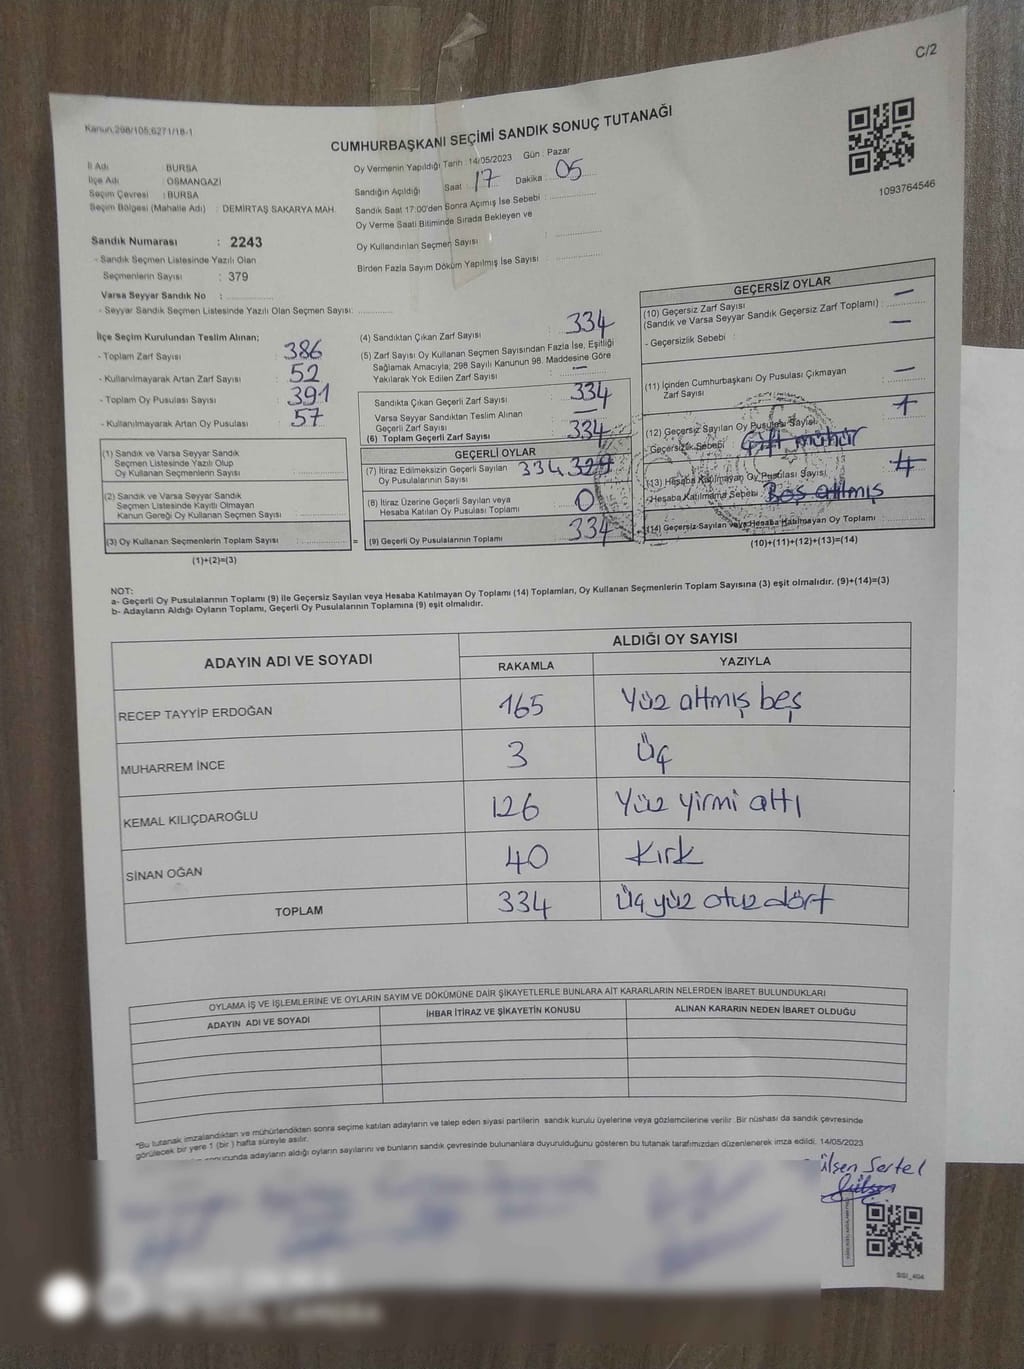 C/2
Kanun;298/105;6271/18-1
CUMHURBAŞKANI SEÇİMİ SANDIK SONUÇ TUTANAĞI
1093764546
İl Adı : BURSA
İlçe Adı : OSMANGAZİ
Seçim Çevresi : BURSA
Seçim Bölgesi (Mahalle Adı) : DEMİRTAŞ SAKARYA MAH.
Sandık Numarası : 2243
- Sandık Seçmen Listesinde Yazılı Olan
Seçmenlerin Sayısı : 379
Varsa Seyyar Sandık No :
- Seyyar Sandık Seçmen Listesinde Yazılı Olan Seçmen Sayısı:
Oy Vermenin Yapıldığı Tarih : 14/05/2023 Gün : Pazar
Sandığın Açıldığı Saat : 17 Dakika : 05
Sandık Saat 17:00'den Sonra Açımış İse Sebebi :
Oy Verme Saati Bitiminde Sırada Bekleyen ve
Oy Kullandırılan Seçmen Sayısı :
Birden Fazla Sayım Döküm Yapılmış İse Sayısı :
İlçe Seçim Kurulundan Teslim Alınan;
- Toplam Zarf Sayısı : 386
- Kullanılmayarak Artan Zarf Sayısı : 52
- Toplam Oy Pusulası Sayısı : 391
- Kullanılmayarak Artan Oy Pusulası : 57
(1) Sandık ve Varsa Seyyar Sandık
Seçmen Listesinde Yazılı Olup
Oy Kullanan Seçmenlerin Sayısı :
(2) Sandık ve Varsa Seyyar Sandık
Seçmen Listesinde Kayıtlı Olmayan
Kanun Gereği Oy Kullanan Seçmen Sayısı :
(3) Oy Kullanan Seçmenlerin Toplam Sayısı : =
(1)+(2)=(3)
(4) Sandıktan Çıkan Zarf Sayısı : 334
(5) Zarf Sayısı Oy Kullanan Seçmen Sayısından Fazla İse, Eşitliği
Sağlamak Amacıyla; 298 Sayılı Kanunun 98. Maddesine Göre
Yakılarak Yok Edilen Zarf Sayısı : —
Sandıkta Çıkan Geçerli Zarf Sayısı : 334
Varsa Seyyar Sandıktan Teslim Alınan
Geçerli Zarf Sayısı : —
(6) Toplam Geçerli Zarf Sayısı : 334
GEÇERLİ OYLAR
(7) İtiraz Edilmeksizin Geçerli Sayılan 334
Oy Pusulalarının Sayısı :
(8) İtiraz Üzerine Geçerli Sayılan veya
Hesaba Katılan Oy Pusulası Toplamı : 0
(9) Geçerli Oy Pusulalarının Toplamı : 334
GEÇERSİZ OYLAR
(10) Geçersiz Zarf Sayısı
(Sandık ve Varsa Seyyar Sandık Geçersiz Zarf Toplamı) : —
- Geçersizlik Sebebi : —
(11) İçinden Cumhurbaşkanı Oy Pusulası Çıkmayan
Zarf Sayısı : —
(12) Geçersiz Sayılan Oy Pusulası Sayısı
- Geçersizlik Sebebi : Çift mühür
(13) Hesaba Katılmayan Oy Pusulası Sayısı
- Hesaba Katılmama Sebebi : Boş atılmış
(14) Geçersiz Sayılan veya Hesaba Katılmayan Oy Toplamı :
(10)+(11)+(12)+(13)=(14)
NOT:
a- Geçerli Oy Pusulalarının Toplamı (9) ile Geçersiz Sayılan veya Hesaba Katılmayan Oy Toplamı (14) Toplamları, Oy Kullanan Seçmenlerin Toplam Sayısına (3) eşit olmalıdır. (9)+(14)=(3)
b- Adayların Aldığı Oyların Toplamı, Geçerli Oy Pusulalarının Toplamına (9) eşit olmalıdır.
ADAYIN ADI VE SOYADI ALDIĞI OY SAYISI
RAKAMLA YAZIYLA
RECEP TAYYİP ERDOĞAN 165 Yüz altmış beş
MUHARREM İNCE 3 Üç
KEMAL KILIÇDAROĞLU 126 Yüz yirmi altı
SİNAN OĞAN 40 Kırk
TOPLAM 334 Üç yüz otuz dört
OYLAMA İŞ VE İŞLEMLERİNE VE OYLARIN SAYIM VE DÖKÜMÜNE DAİR ŞİKAYETLERLE BUNLARA AİT KARARLARIN NELERDEN İBARET BULUNDUKLARI
ADAYIN ADI VE SOYADI İHBAR İTİRAZ VE ŞİKAYETİN KONUSU ALINAN KARARIN NEDEN İBARET OLDUĞU
*Bu tutanak imzalandıktan ve mühürlendikten sonra seçime katılan adayların ve talep eden siyasi partilerin sandık kurulu üyelerine veya gözlemcilerine verilir. Bir nüshası da sandık çevresinde
görülecek bir yere 1 (bir ) hafta süreyle asılır.
sonucunda adayların aldığı oyların sayılarını ve bunların sandık çevresinde bulunanlara duyurulduğunu gösteren bu tutanak tarafımızdan düzenlenerek imza edildi. 14/05/2023
ülsen Sertel